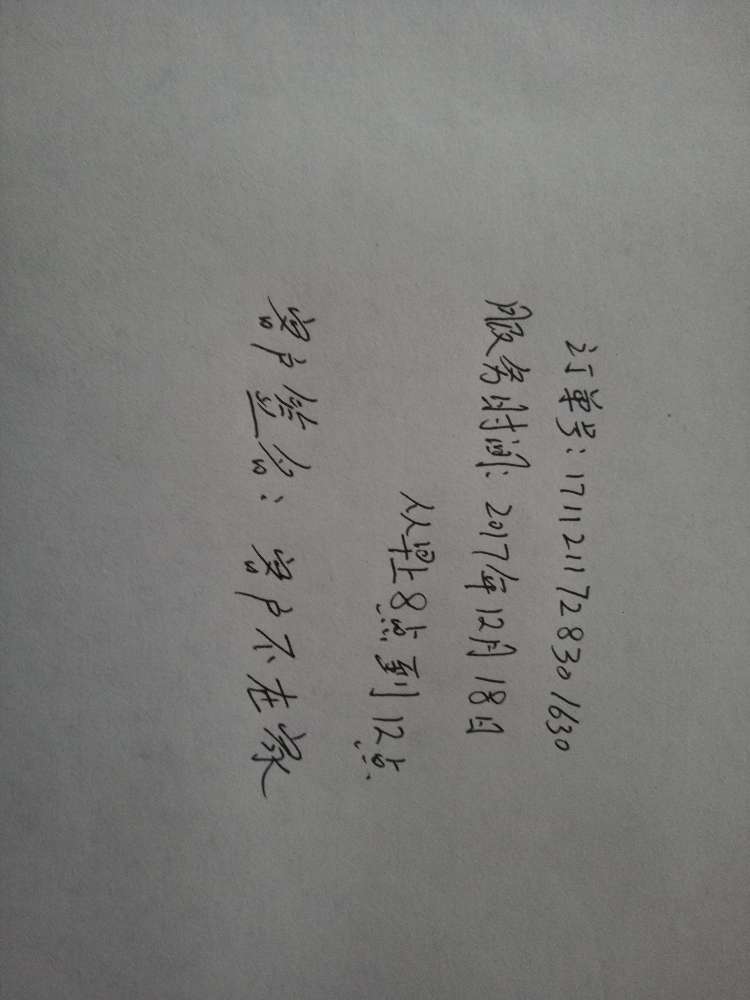 订单号:1711211728301630
服务时间:2017年12月18日
从早上8点到12点
客户签名:客户不在家